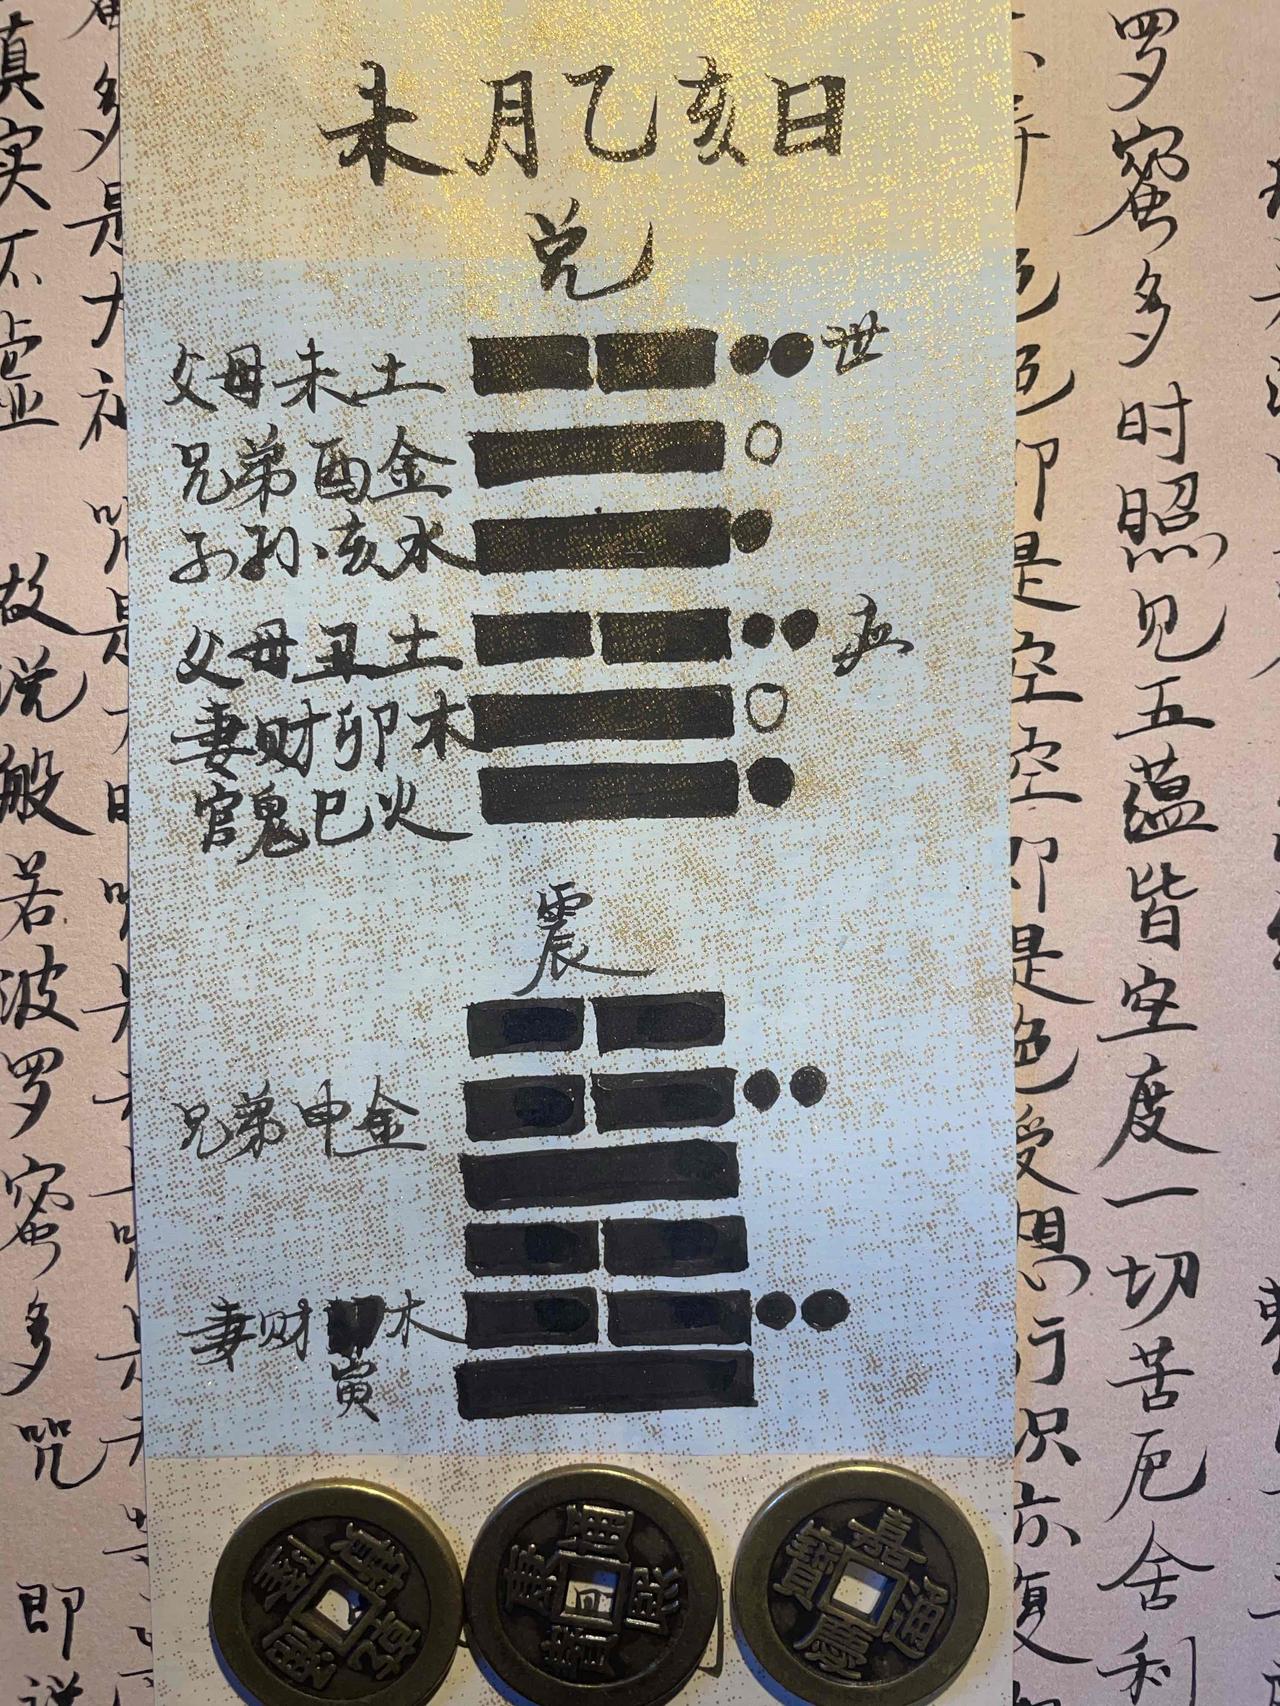 未月乙亥日
兑
父母未土 世
兄弟酉金
子孙亥水
父母丑土 应
妻财卯木
官鬼巳火
震
兄弟申金
妻财 木
寅
嘉慶通寶
康熙通寶
罗蜜多时照见五蕴皆空度一切苦厄舍利
色 色即是空空即是色受想行识亦复
多是大
真实不虚 故说般若波罗蜜多咒 即说